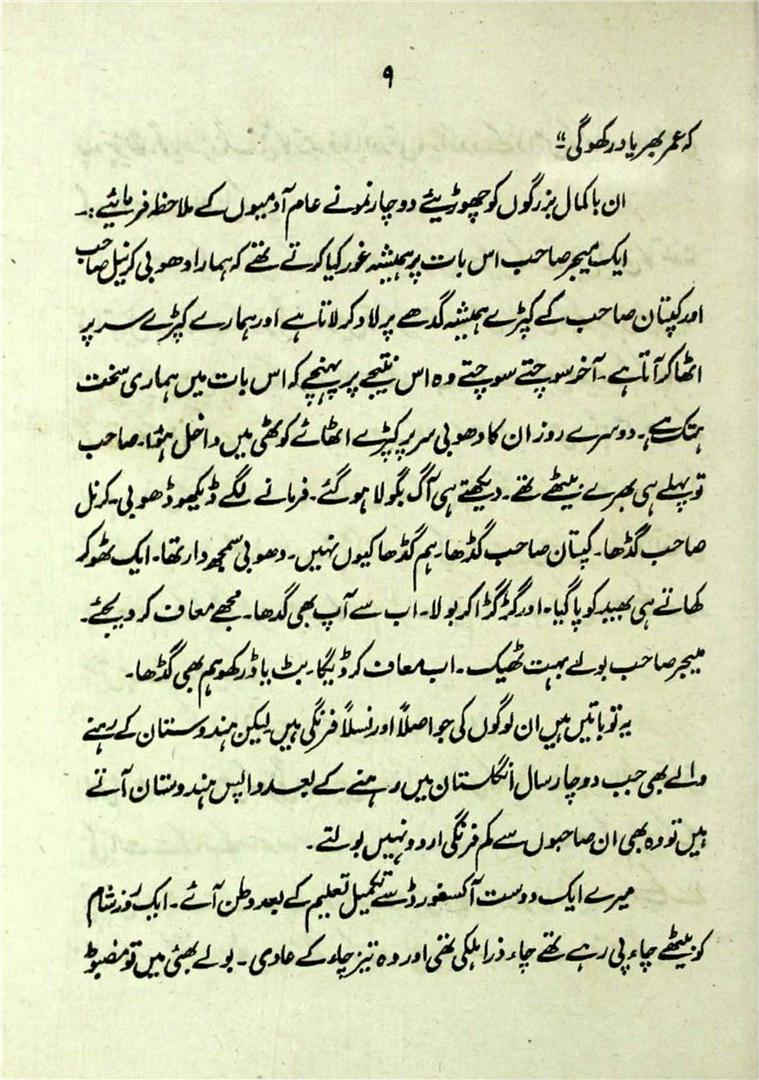 ۹
کہ عمر بھر یاد رکھو گی“
ان باکمال بزرگوں کو چھوڑیئے دو چار نمونے عام آدمیوں کے ملاحظہ فرمائیے:۔
ایک میجر صاحب اس بات پر ہمیشہ غور کیا کرتے تھے کہ ہمارا دھوبی کرنیل صاحب
اور کپتان صاحب کے کپڑے ہمیشہ گدھے پر لاد کر لاتا ہے اور ہمارے کپڑے سر پر
اٹھا کر آتا ہے۔ آخر سوچتے سوچتے وہ اس نتیجے پر پہنچے کہ اس بات میں ہماری سخت
ہتک ہے۔ دوسرے روز ان کا دھوبی سر پر کپڑے اٹھائے کوٹھی میں داخل ہوا۔ صاحب
تو پہلے ہی بھرے بیٹھے تھے۔ دیکھتے ہی آگ بگولا ہو گئے۔ فرمانے لگے ڈیکھو ڈھوبی۔ کرنل
صاحب گڈھا۔ کپتان صاحب گڈھا۔ ہم گڈھا کیوں نہیں۔ دھوبی سمجھ دار تھا۔ ایک ٹھوکر
کھاتے ہی بھید کو پا گیا۔ اور گڑگڑا کر بولا۔ اب سے آپ بھی گدھا۔ مجھے معاف کر دیجئے۔
میجر صاحب بولے بہت ٹھیک۔ اب معاف کر ڈیگا۔ بٹ یاڈ رکھو ہم بھی گڈھا۔
یہ تو باتیں ہیں ان لوگوں کی جو اصلاً اور نسلاً فرنگی ہیں لیکن ہندوستان کے رہنے
والے بھی جب دو چار سال انگلستان میں رہنے کے بعد واپس ہندوستان آتے
ہیں تو وہ بھی ان صاحبوں سے کم فرنگی اردو نہیں بولتے۔
میرے ایک دوست آکسفورڈ سے تکمیل تعلیم کے بعد وطن آئے۔ ایک روز شام
کو بیٹھے چاء پی رہے تھے چاء ذرا ہلکی تھی اور وہ تیز چاء کے عادی۔ بولے بھئی میں تو مضبوط